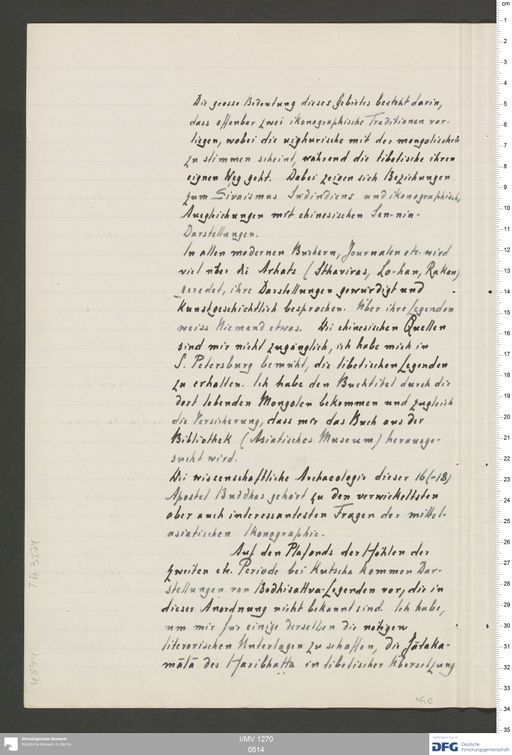 Die grosse Bedeutung dieses Gebietes besteht darin,
dass offenbar zwei ikonographische Traditionen vor-
liegen, wobei die uighurische mit der mongolischen
zu stimmen scheint, während die tibetische ihren
eignen Weg geht. Dabei zeigen sich Beziehungen
zum Sivaismus Südindiens und ikonographisch,
Ausgleichungen mit chinesischen Sen-nin-
Darstellungen.
In allen modernen Büchern, Journalen etc. wird
viel über die Arhats (Sthaviras, Lo-han, Rakan)
geredet, ihre Darstellungen gewürdigt und
kunstgeschichtlich besprochen. Über ihre Legenden
weiss Niemand etwas. Die chinesischen Quellen
sind mir nicht zugänglich, ich habe mich in
S. Petersburg bemüht, die tibetischen Legenden
zu erhalten. Ich habe den Buchtitel durch die
dort lebenden Mongolen bekommen und zugleich
die Versicherung, dass mir das Buch aus der
Bibliothek (Asiatisches Museum) herausge-
sucht wird.
Die wissenschaftliche Archaeologie dieser 16 (-18)
Apostel Buddhas gehört zu den verwickeltsten
aber auch interessantesten Fragen der mittel-
asiatischen Ikonographie.
Auf den Plafonds der Höhlen der
zweiten etc. Periode bei Kutscha kommen Dar-
stellungen von Bodhisattva-Legenden vor, die in
dieser Anordnung nicht bekannt sind. Ich habe,
um mir für einige derselben die nötigen
literarischen Unterlagen zu schaffen, die Jātaka-
mālā des Haribhaṭṭa in tibetischer Übersetzung
490
I/MV 1270
0514
Ethnologisches Museum
Staatliche Museen zu Berlin
DFG Deutsche
Forschungsgemeinschaft